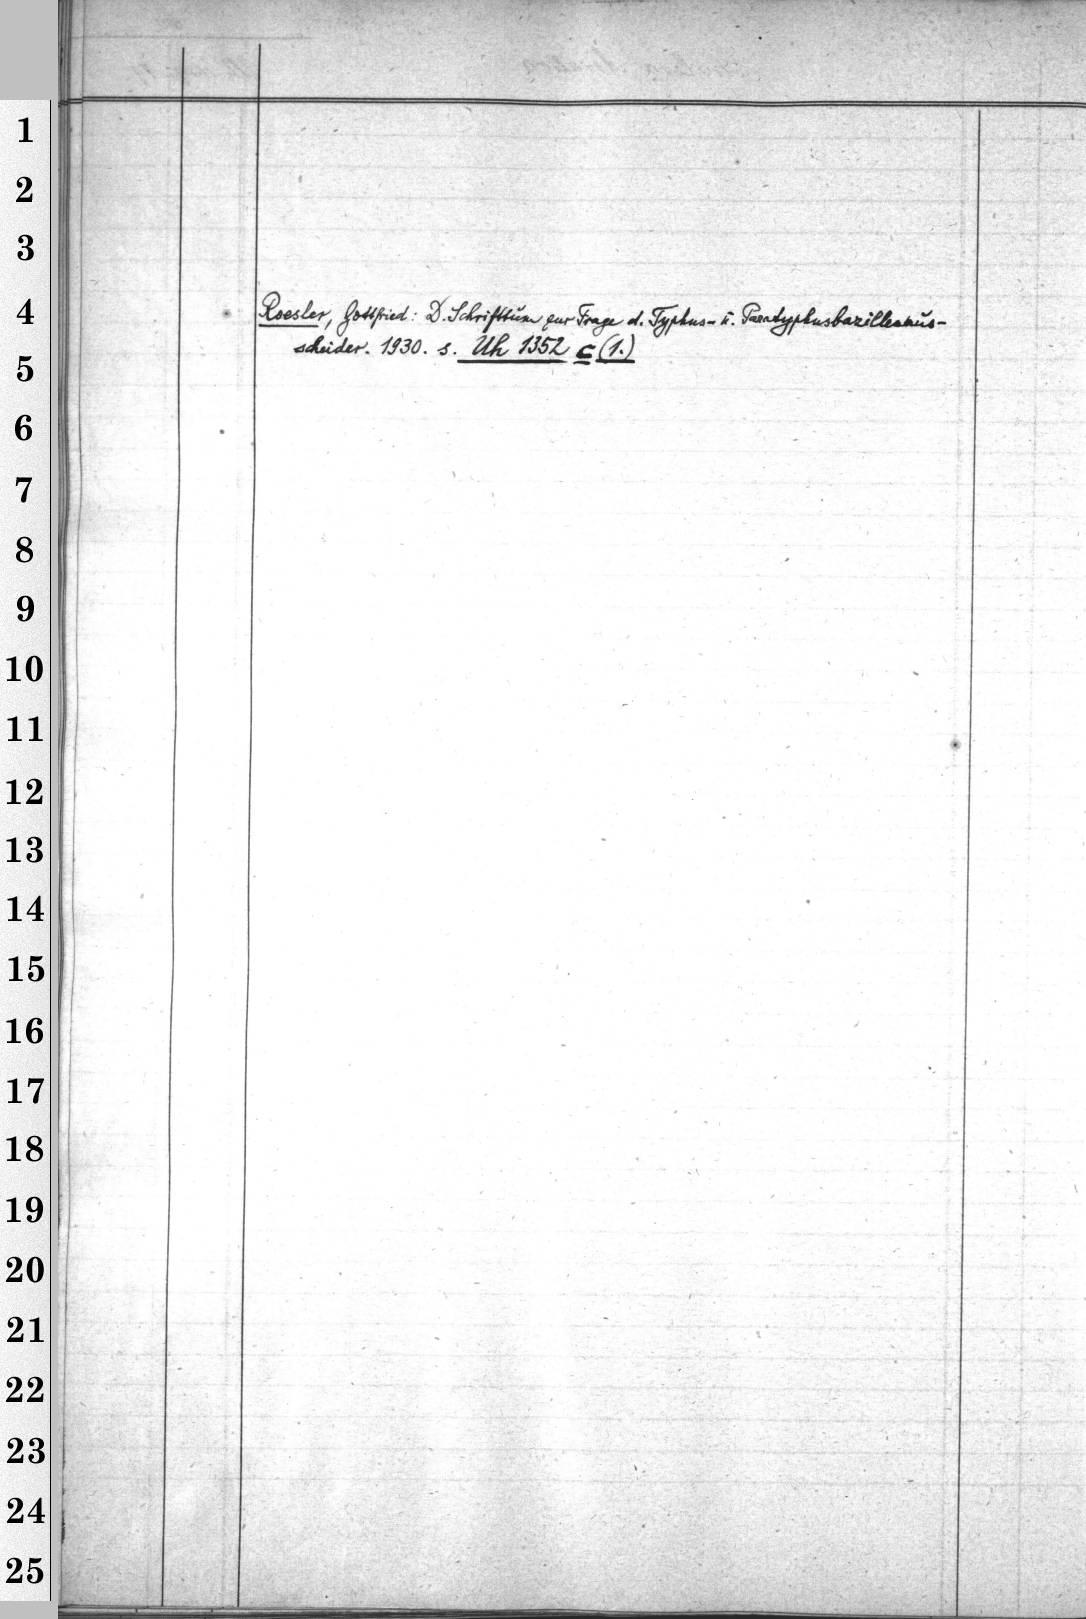 1
2
3
4
Roesler, Gottfried: D. Schrifttum zur Frage d. Typhus- u. Paratyphusbazillenaus-
scheider. 1930. s. Uh 1352 c (1.)
5
6
7
8
9
10
11
12
13
14
15
16
17
18
19
20
21
22
23
24
25